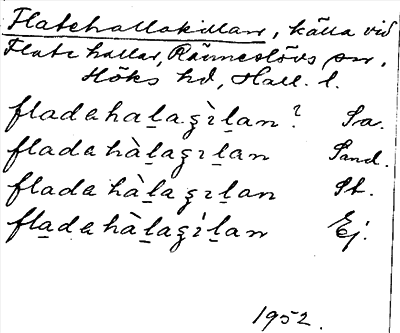 Flatehallakillan, källa vid
Flatehallar, Ränneslövs sn,
Höks hd, Hall. l.
fladahaḻagìḻan? Sa.
fladahàḻagıḻan Sand.
fladahàḻagıḻan St.
fladahàḻagìḻan Ej.
1952.